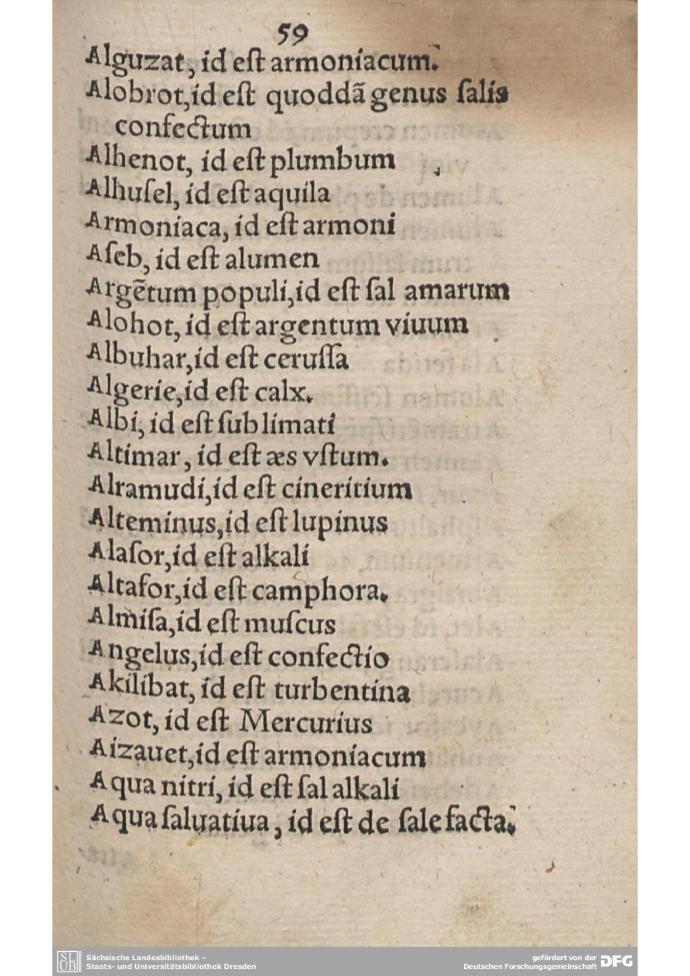 59
Alguzat, id eſt armoniacum.
Alobrot,id eſt quoddã genus ſalis
confectum
Alhenot, id eſt plumbum
Alhuſel, id eſt aquila
Armoniaca, id eſt armoni
Aſeb, id eſt alumen
Argẽtum populi,id eſt ſal amarum
Alohot, id eſt argentum viuum
Albuhar,id eſt ceruſſa
Algerie,id eſt calx.
Albi, id eſt ſublimati
Altimar, id eſt æs vſtum.
Alramudi,id eſt cineritium
Alteminus,id eſt lupinus
Alaſor,id eſt alkali
Altafor,id eſt camphora.
Almiſa,id eſt muſcus
Angelus,id eſt confectio
Akilibat, id eſt turbentina
Azot, id eſt Mercurius
Aizauet,id eſt armoniacum
Aqua nitri, id eſt ſal alkali
Aqua ſaluatiua, id eſt de ſale facta.
SLUB
Sächsische Landesbibliothek –
Staats- und Universitätsbibliothek Dresden
gefördert von der
Deutschen Forschungsgemeinschaft
DFG